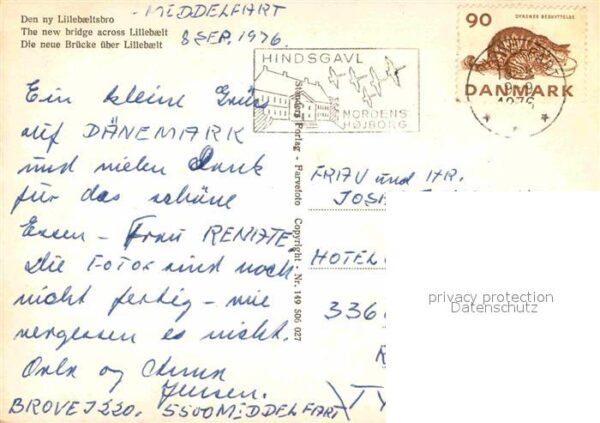 Den ny Lillebæltsbro
The new bridge across Lillebælt
Die neue Brücke über Lillebælt
MEDDELFART
8 SEP. 1976.
HINDSGAVL
NORDENS
HØJBORG
90
DYRENES BESKYTTELSE
DANMARK
1976
Ein kleine Grüs
auf DÄNEMARK
und vielen Dank
für das schöne
Essen - Frau RENATE,
Die FOTOS sind noch
nicht fertig - wir
vergessen es nicht.
og
Jensen.
BROVEJ 220. 5500 MEDDELFART
Forlag - Farvefoto Copyright - Nr. 149 506 027
FRAU und HR.
HOTEL
336
privacy protection
Datenschutz